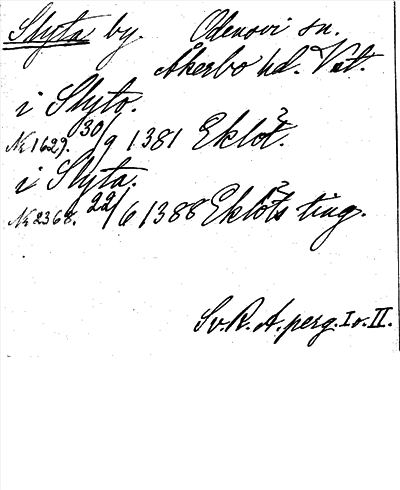 Slyta by. Odensvi sn.
Åkerbo hd. Vstm.
i Slyto.
№ 1629. 30/9 1381 Eklöt.
i Slyta.
№ 2368. 22/6 1388 Eklöts ting.
Sv. R. A. perg. I o. II.